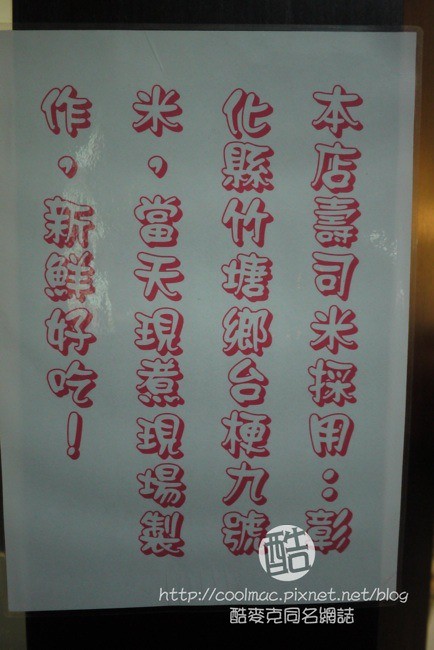 本店壽司米採用：彰
化縣竹塘鄉台梗九號
米，當天現煮現場製
作，新鮮好吃！
酷
http://coolmac.pixnet.net/blog
酷麥克同名網誌